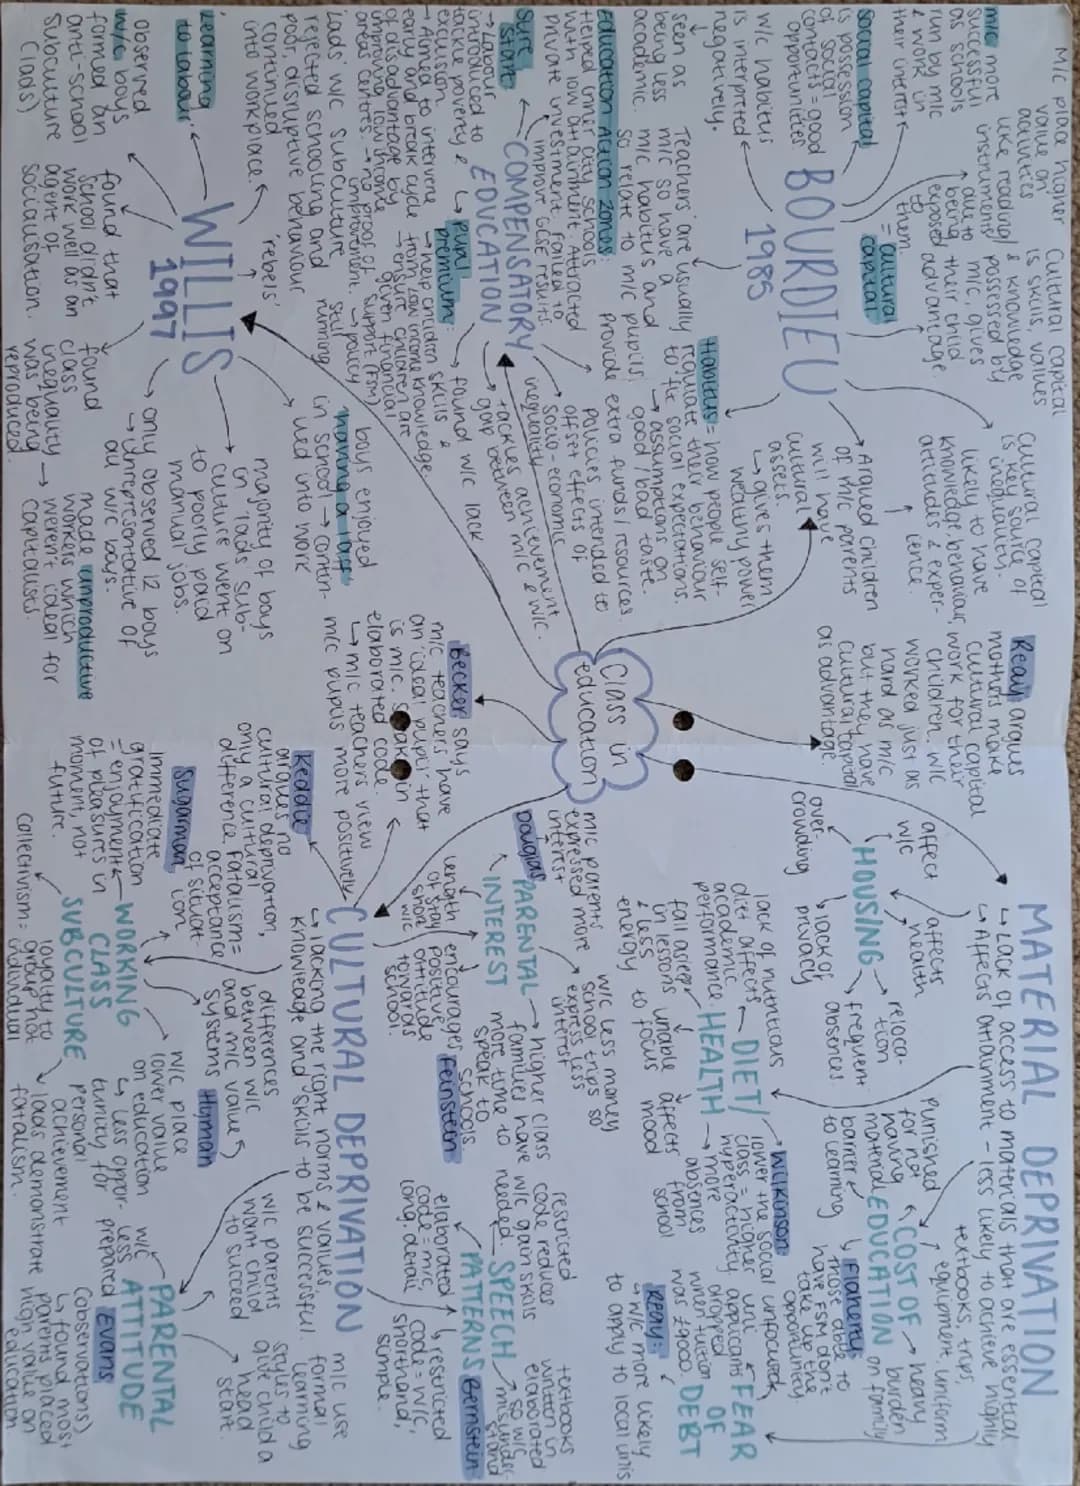 Class in
education
BOURDIEU
1985
M/C place higher
value on
activities
like reading/
instruments
due to
being
exposed to
them.
Cultural capital
is skills, values
& knowledge
possessed by
M/C, gives
their child
advantage.
= cultural
capital
M/C more
as schools
run by m/c
& work in
their interest
social capital
is possession
of social
contacts = good
opportunities
w/c habitus
is interpreted
negatively.
Teachers are usually
m/c so have a
m/c habitus and
so relate to m/c pupils.
seen as
being less
academic.
Habitus = how people self-
regulate their behaviour
to fit social expectations.
→ assumptions on
good/bad taste.
cultural capital
is key source of
inequality.
likely to have
knowledge, behaviour,
attitudes & exper-
ience.
Argued children
of m/c parents
will have
cultural
assets.
↳ gives them
wealth, power
Reay argues
mothers make
cultural capital
work for their
children. W/C
worked just as
hard as m/c
but they have
cultural capital
as advantage.
COMPENSATORY
EDUCATION
policies intended to
provide extra funds/resources.
offset effects of
socio-economic
inequality
tackles achievement
gap between m/c & w/c.
Education Action Zones:
Helped inner city schools
with low attainment. Attracted
private investment, failed to
improve GCSE results.
Sure
Start
→ Labour
introduced to
tackle poverty &
exclusion.
→ Aimed to intervene
early and break cycle
of disadvantage by
improving low income
areas centres. → no proof of
improvement.
↳ pupil
premium:
→ help children
from low income
→ ensure children are
given financial
support (FSM)
→ policy
still
running
found w/c lack
skills &
knowledge.
WILLIS
1997
'rebels'
'Lads' w/c subculture
rejected schooling and
poor, disruptive behaviour
continued
into workplace.
'Learning
to labour'
observed
w/c boys
formed an
anti-school
subculture
(lads)
found that
school didn't
work well as an
agent of
socialisation.
found
class
inequality
was being
reproduced.
→ made unproductive
workers which
weren't ideal for
capitalists.
only observed 12 boys
→ unrepresentative of
all w/c boys.
majority of boys
in 'lads' sub-
culture went on
to poorly paid
manual jobs.
boys enjoyed
'having a laff'
in school → contin-
ued into work
Becker says
m/c teachers have
an ideal pupil that
is m/c. Speak in
elaborated code.
↳ m/c teachers view
m/c pupils more positively
MATERIAL DEPRIVATION
↳ Lack of access to materials that are essential
↳ Affects attainment - less likely to achieve highly
HOUSING
affect
w/c
affects
health
over-
crowding
lack of
privacy
reloca-
tion
frequent
absences
DIET/
HEALTH
lack of nutritious
diet affects
academic
performance.
fall asleep
in lessons
& less
energy
unable
to focus
affects
mood
more
absences
from
school
Wilkinson:
lower the social
class = higher
hyperactivity.
COST OF
EDUCATION
textbooks, trips,
equipment, uniform
punished
for not
having
material
barrier
to learning
heavy
burden
on family
Flaherty:
those able to
have FSM don't
take up the
opportunity.
FEAR
OF
DEBT
uni
applicants
dropped
when tuition
was £9000.
Reay:
↳ w/c more likely
to apply to local unis
CULTURAL DEPRIVATION
↳ lacking the right norms & values,
knowledge and skills to be successful.
PARENTAL
INTEREST
Douglas
m/c parents
expressed more
interest
w/c less money
school trips so
express less
interest
→ higher class
families have
more time to
speak to
schools.
Feinstein
encourages
positive
attitude
towards
school.
length
of stay
short
w/c
SPEECH
PATTERNS
Bernstein
restricted
code reduces
w/c gain skills
needed.
textbooks
written in
elaborated
so w/c
misunder-
stand
elaborated
code = m/c,
long, detail
restricted
code = w/c,
shorthand,
simple.
Keddie
argues no
cultural deprivation,
only a cultural
difference
WORKING
CLASS
SUBCULTURE
Sugarman
Immediate
gratification
= enjoyment
of pleasures in
moment, not
future.
Fatalism =
acceptance
of situat-
ion
Collectivism =
loyalty to
group not
individual
differences
between w/c
and m/c value
systems
Hyman
w/c place
lower value
on education
↳ less oppor-
tunity for
personal
achievement
lads demonstrate
fatalism.
PARENTAL
ATTITUDE
w/c
less
prepared
w/c parents
want child
to succeed
m/c use
formal
learning
styles to
give child a
head
start.
Evans
(observations)
↳ found most
parents placed
high value on
education